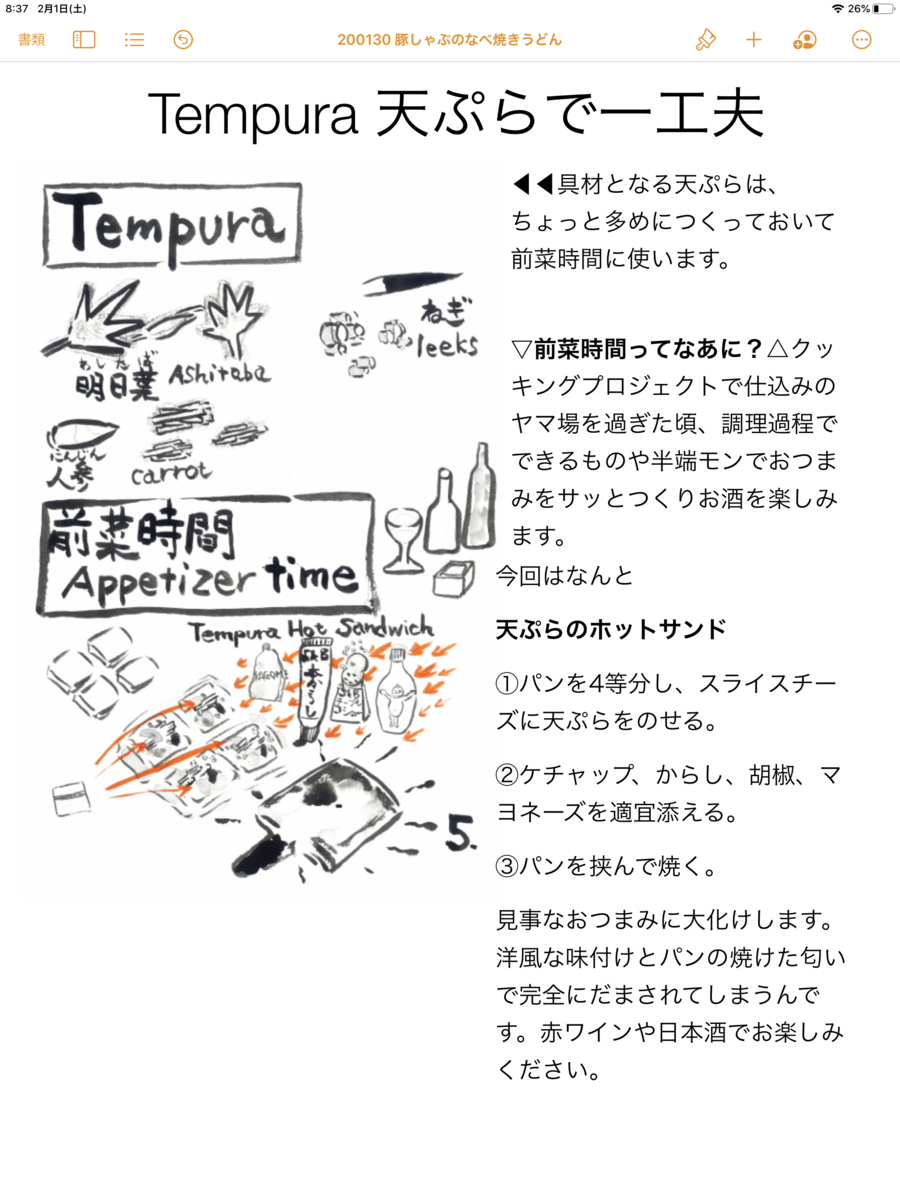 8:37 2月1日(土)
26%
書類
200130 豚しゃぶのなべ焼きうどん
Tempura 天ぷらで一工夫
Tempura
ねぎ
leeks
あしたば
明日葉 Ashitaba
にんじん
人参 carrot
前菜時間
Appetizer time
Tempura Hot Sandwich
KAGOME
S&B
本からし
S&B
5.
◀◀具材となる天ぷらは、
ちょっと多めにつくっておいて
前菜時間に使います。
▽前菜時間ってなあに？△クッ
キングプロジェクトで仕込みの
ヤマ場を過ぎた頃、調理過程で
できるものや半端モンでおつま
みをサッとつくりお酒を楽しみ
ます。
今回はなんと
天ぷらのホットサンド
①パンを4等分し、スライスチー
ズに天ぷらをのせる。
②ケチャップ、からし、胡椒、マ
ヨネーズを適宜添える。
③パンを挟んで焼く。
見事なおつまみに大化けします。
洋風な味付けとパンの焼けた匂い
で完全にだまされてしまうんで
す。赤ワインや日本酒でお楽しみ
ください。